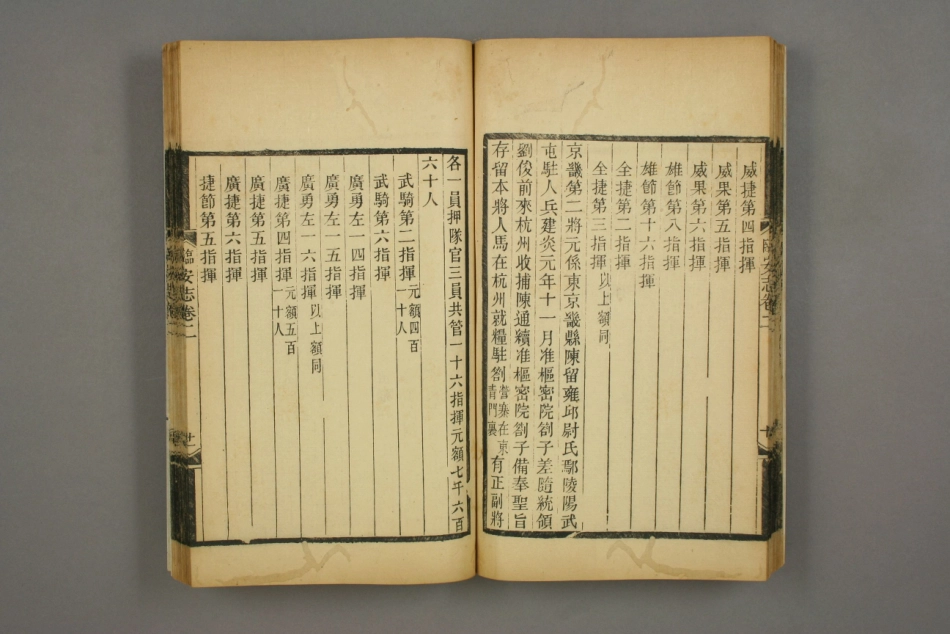 威捷第四指揮
威果第五指揮
威果第六指揮
雄節第八指揮
雄節第十六指揮
全捷第二指揮
全捷第三指揮以上額同
京畿第二將元係東京畿縣陳留雍邱尉氏鄢陵陽武
屯駐人兵建炎元年十一月准樞密院劄子差隨統領
劉俊前來杭州收捕陳通續准樞密院劄子備奉聖旨
存留本將人馬在杭州就糧駐劄營寨在東青門裏有正副將
各一員押隊官三員共管一十六指揮元額七千六百
六十人
武騎第二指揮元額四百一十人
武騎第六指揮
廣勇左一四指揮
廣勇左一五指揮
廣勇左一六指揮以上額同
廣捷第四指揮元額五百一十人
廣捷第五指揮
廣捷第六指揮
捷節第五指揮
臨安志卷二